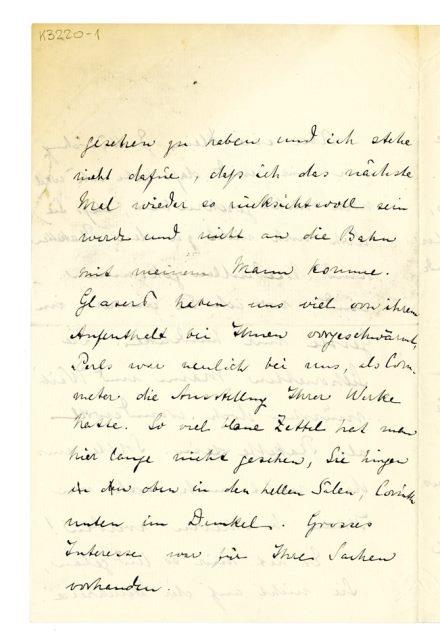 K3220-1
gesehen zu haben und ich stehe
nicht dafür, daß ich das nächste
Mal wieder so rücksichtsvoll sein
werde und nicht an die Bahn
mit meinem Mann komme.
Glasers haben uns viel von ihrem
Aufenthalt bei Ihnen vorgeschwärmt,
Perls war neulich bei uns, als Com-
meter die Ausstellung Ihrer Werke
hatte. So viel blaue Zettel hat man
hier lange nicht gesehen, Sie hingen
oben in den hellen Sälen, Corinth
unten im Dunkel. Grosses
Interesse war für Ihre Sachen
vorhanden.